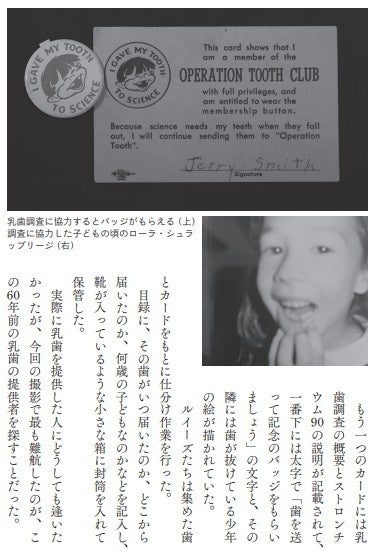 I GAVE MY TOOTH
TO SCIENCE
I GAVE MY TOOTH
TO SCIENCE
This card shows that I
am a member of the
OPERATION TOOTH CLUB
with full privileges, and
am entitled to wear the
membership button.
Because science needs my teeth when they fall
out, I will continue sending them to "Operation
Tooth".
Jerry Smith
Signature
乳歯調査に協力するとバッジがもらえる（上）
調査に協力した子どもの頃のローラ・シュラ
ップリージ（右）
もう一つのカードには乳
歯調査の概要とストロンチ
ウム90の説明が記載されて、
一番下には太字で「歯を送
って記念のバッジをもらい
ましょう」の文字と、その
隣には歯が抜けている少年
の絵が描かれていた。
ルイーズたちは集めた歯
とカードをもとに仕分け作業を行った。
目録に、その歯がいつ届いたのか、どこから
届いたのか、何歳の子どもなのかなどを記入し、
靴が入っているような小さな箱に封筒を入れて
保管した。
実際に乳歯を提供した人にどうしても逢いた
かったが、今回の撮影で最も難航したのが、こ
の60年前の乳歯の提供者を探すことだった。